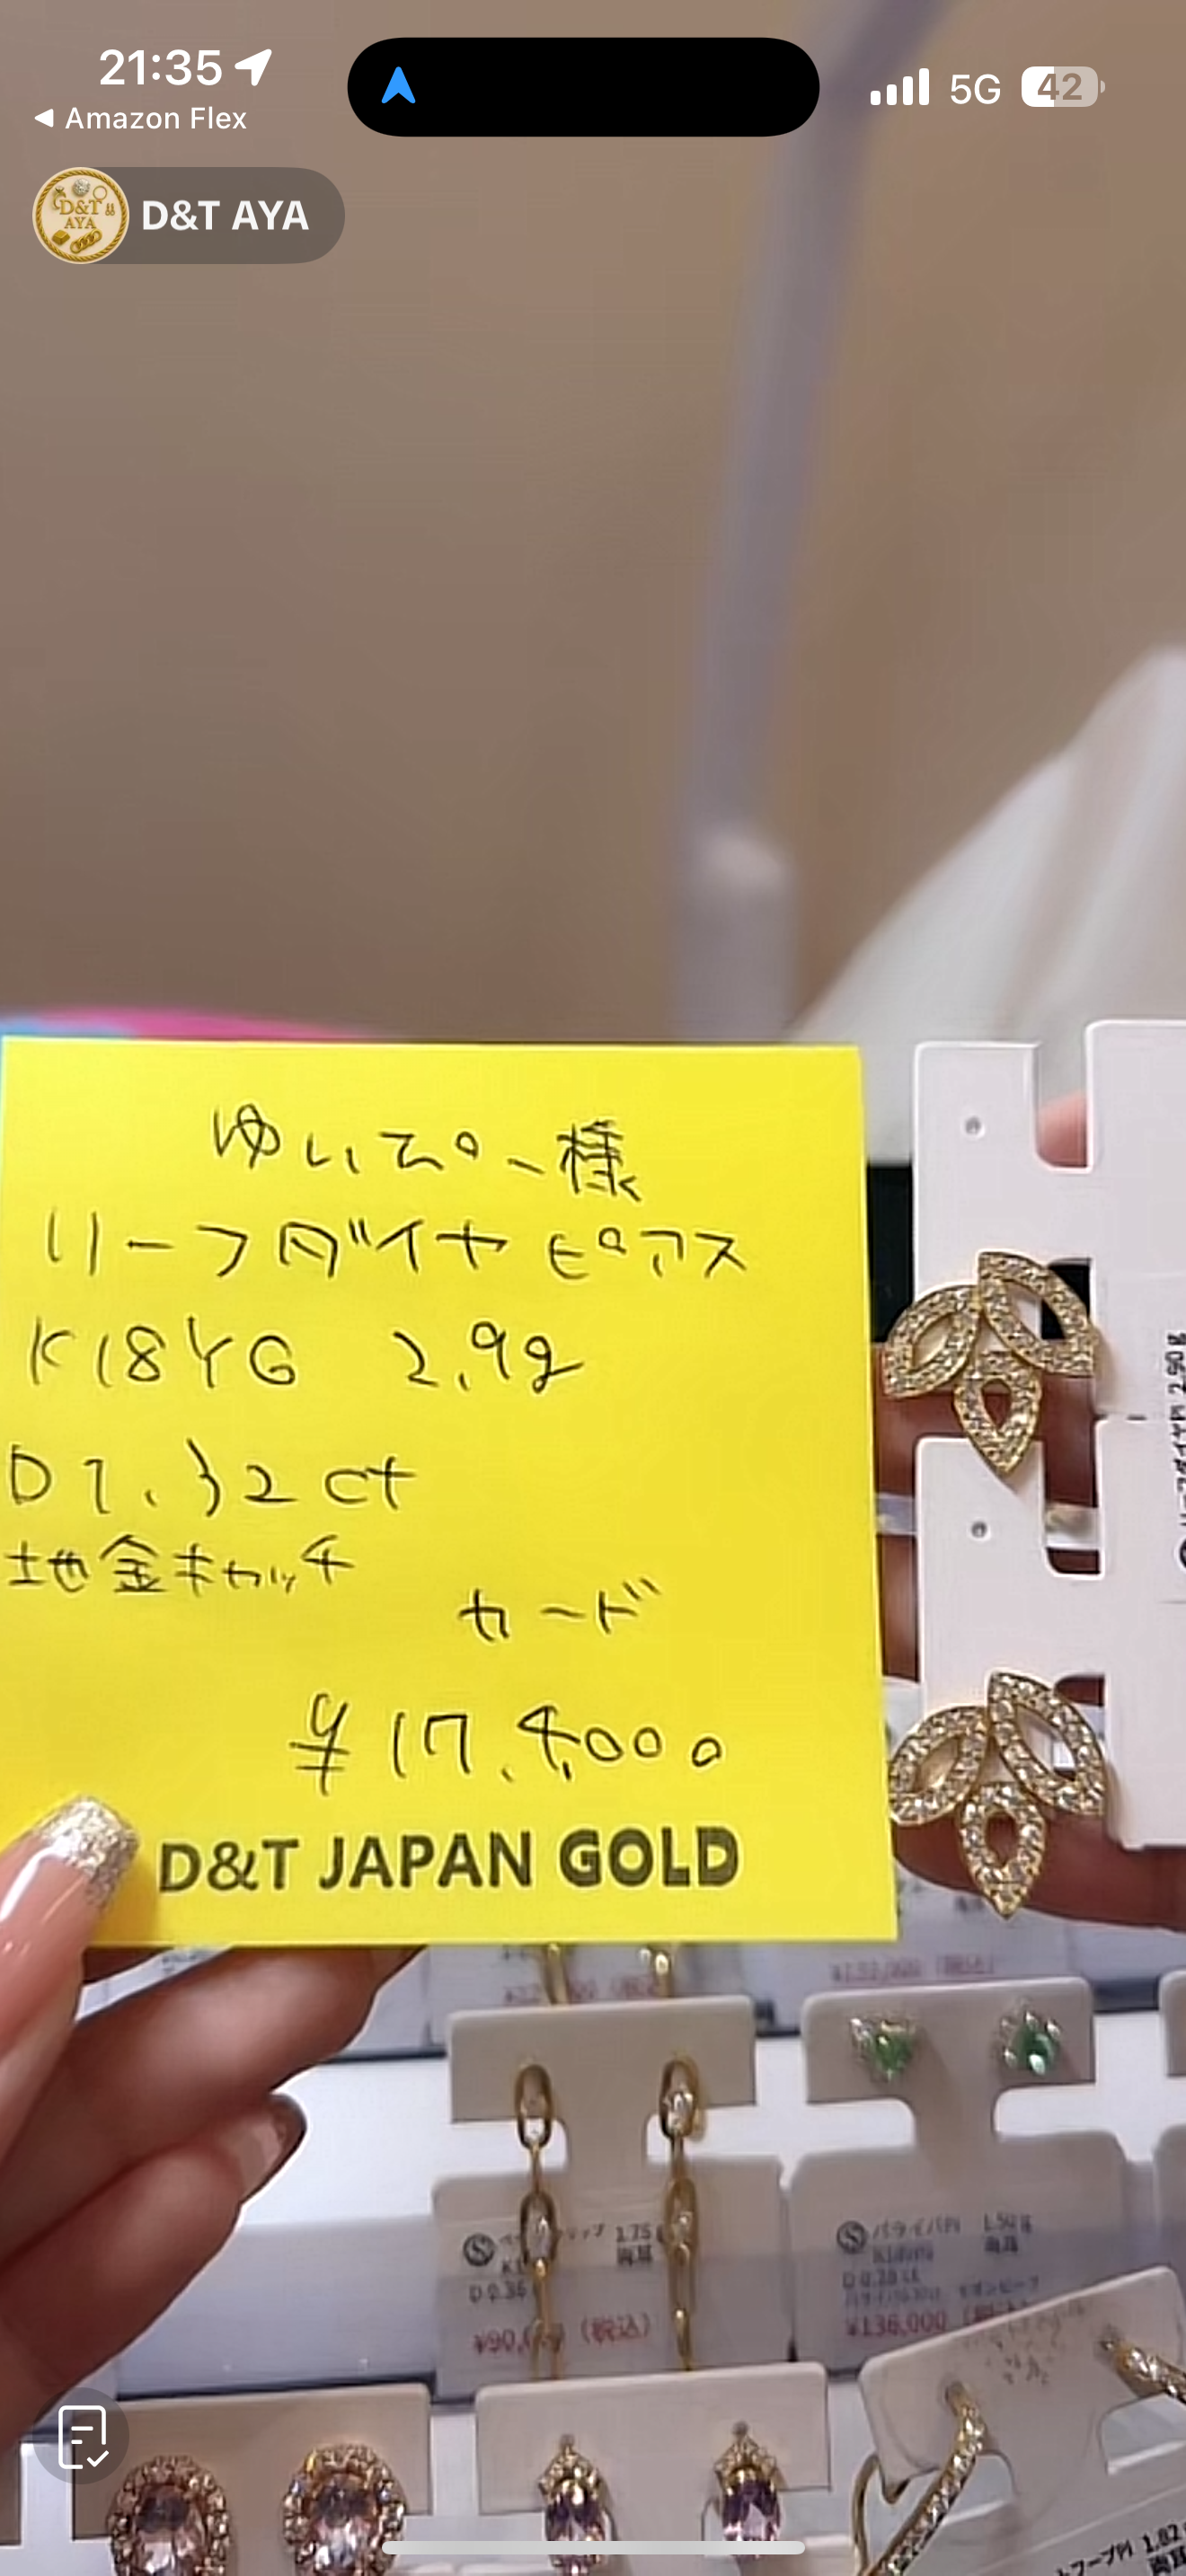 21:35
5G
42
Amazon Flex
D&T AYA
D&T AYA
ゆいぴー様
リーフダイヤピアス
K18YG 2.9g
D1.32ct
地金キャッチ
カード
¥17,4,000
D&T JAPAN GOLD
2.90g
1.75g
D 0.36
(税込)
パライバPI 1.50g
¥136,000
1.82